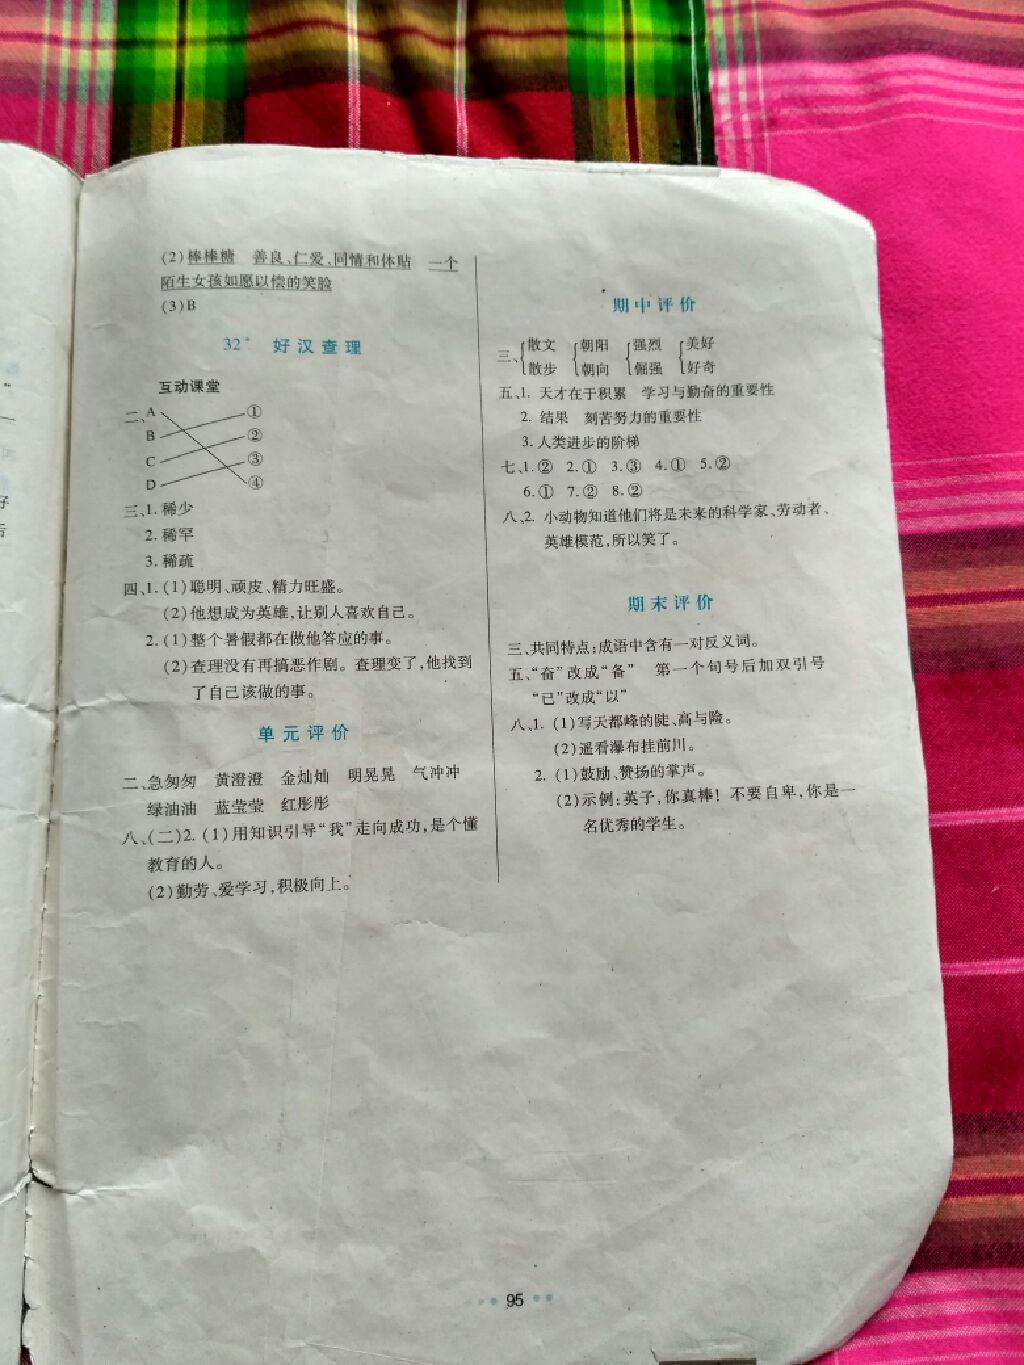 (2)棒棒糖 善良、仁爱、同情和体贴 一个
陌生女孩如愿以偿的笑脸
(3)B
32* 好汉查理
互动课堂
二、A ①
B ②
C ③
D ④
三、1.稀少
2.稀罕
3.稀疏
四、1.(1)聪明、顽皮、精力旺盛。
(2)他想成为英雄,让别人喜欢自己。
2.(1)整个暑假都在做他答应的事。
(2)查理没有再搞恶作剧。查理变了,他找到
了自己该做的事。
单元评价
二、急匆匆 黄澄澄 金灿灿 明晃晃 气冲冲
绿油油 蓝莹莹 红彤彤
八、(二)2.(1)用知识引导“我”走向成功,是个懂
教育的人。
(2)勤劳、爱学习,积极向上。
期中评价
三、散文 朝阳 强烈 美好
散步 朝向 倔强 好奇
五、1. 天才在于积累 学习与勤奋的重要性
2. 结果 刻苦努力的重要性
3.人类进步的阶梯
七、1.② 2.① 3.③ 4.① 5.②
6.① 7.② 8.②
八、2. 小动物知道他们将是未来的科学家、劳动者、
英雄模范,所以笑了。
期末评价
三、共同特点:成语中含有一对反义词。
五、“奋”改成“备” 第一个句号后加双引号
“已”改成“以”
八、1.(1)写天都峰的陡、高与险。
(2)遥看瀑布挂前川。
2.(1)鼓励、赞扬的掌声。
(2)示例:英子,你真棒! 不要自卑,你是一
名优秀的学生。
95